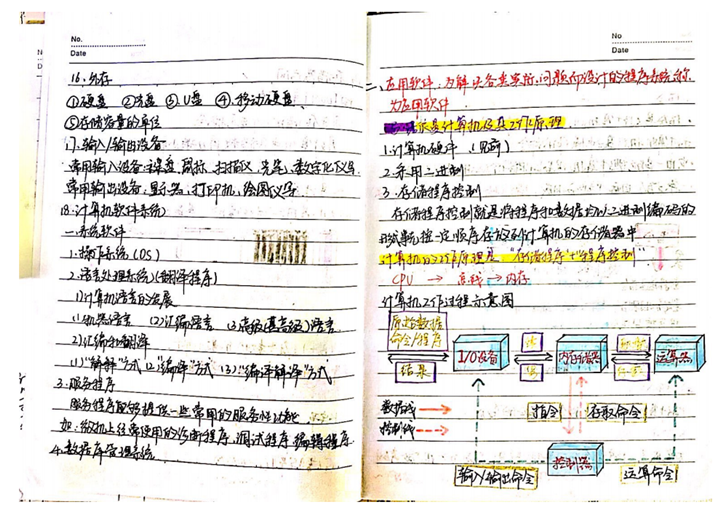 No.
Date
16.外存
①硬盘 ②光盘 ③.U盘 ④.移动硬盘
⑤存储容量的单位
17.输入/输出设备
常用输入设备:键盘、鼠标、扫描仪、光笔、数字化仪等
常用输出设备:显示器、打印机、绘图仪等
18.计算机软件系统
一.系统软件
1.操作系统(OS)
2.语言处理系统(翻译程序)
1)计算机语言的发展
(1)机器语言 (2)汇编语言 (3)高级(甚高级)语言
2)汇编和翻译
(1)"解释"方式 (2)"编译"方式 (3)"编译解释"方式
3.服务程序
服务程序能够提供一些常用的服务性功能
如:微机上经常使用的诊断程序、调试程序、编辑程序
4.数据库管理系统
No
Date
二、应用软件:为解决各类实际问题而设计的程序系统称
为应用软件
是计算机及其工作原理
1.计算机硬件
2.采用二进制
3.存储程序控制
存储程序控制就是将程序和数据均以二进制编码的
形式按一定顺序存放到计算机的存储器中
计算机的工作原理是"存储程序"+"程序控制"
CPU → 总线 → 内存
计算机工作过程示意图
原始数据
命令/程序
结果
I/O设备
内存储器
运算器
数据线
控制线
指令
存取命令
控制器
输入/输出命令
运算命令